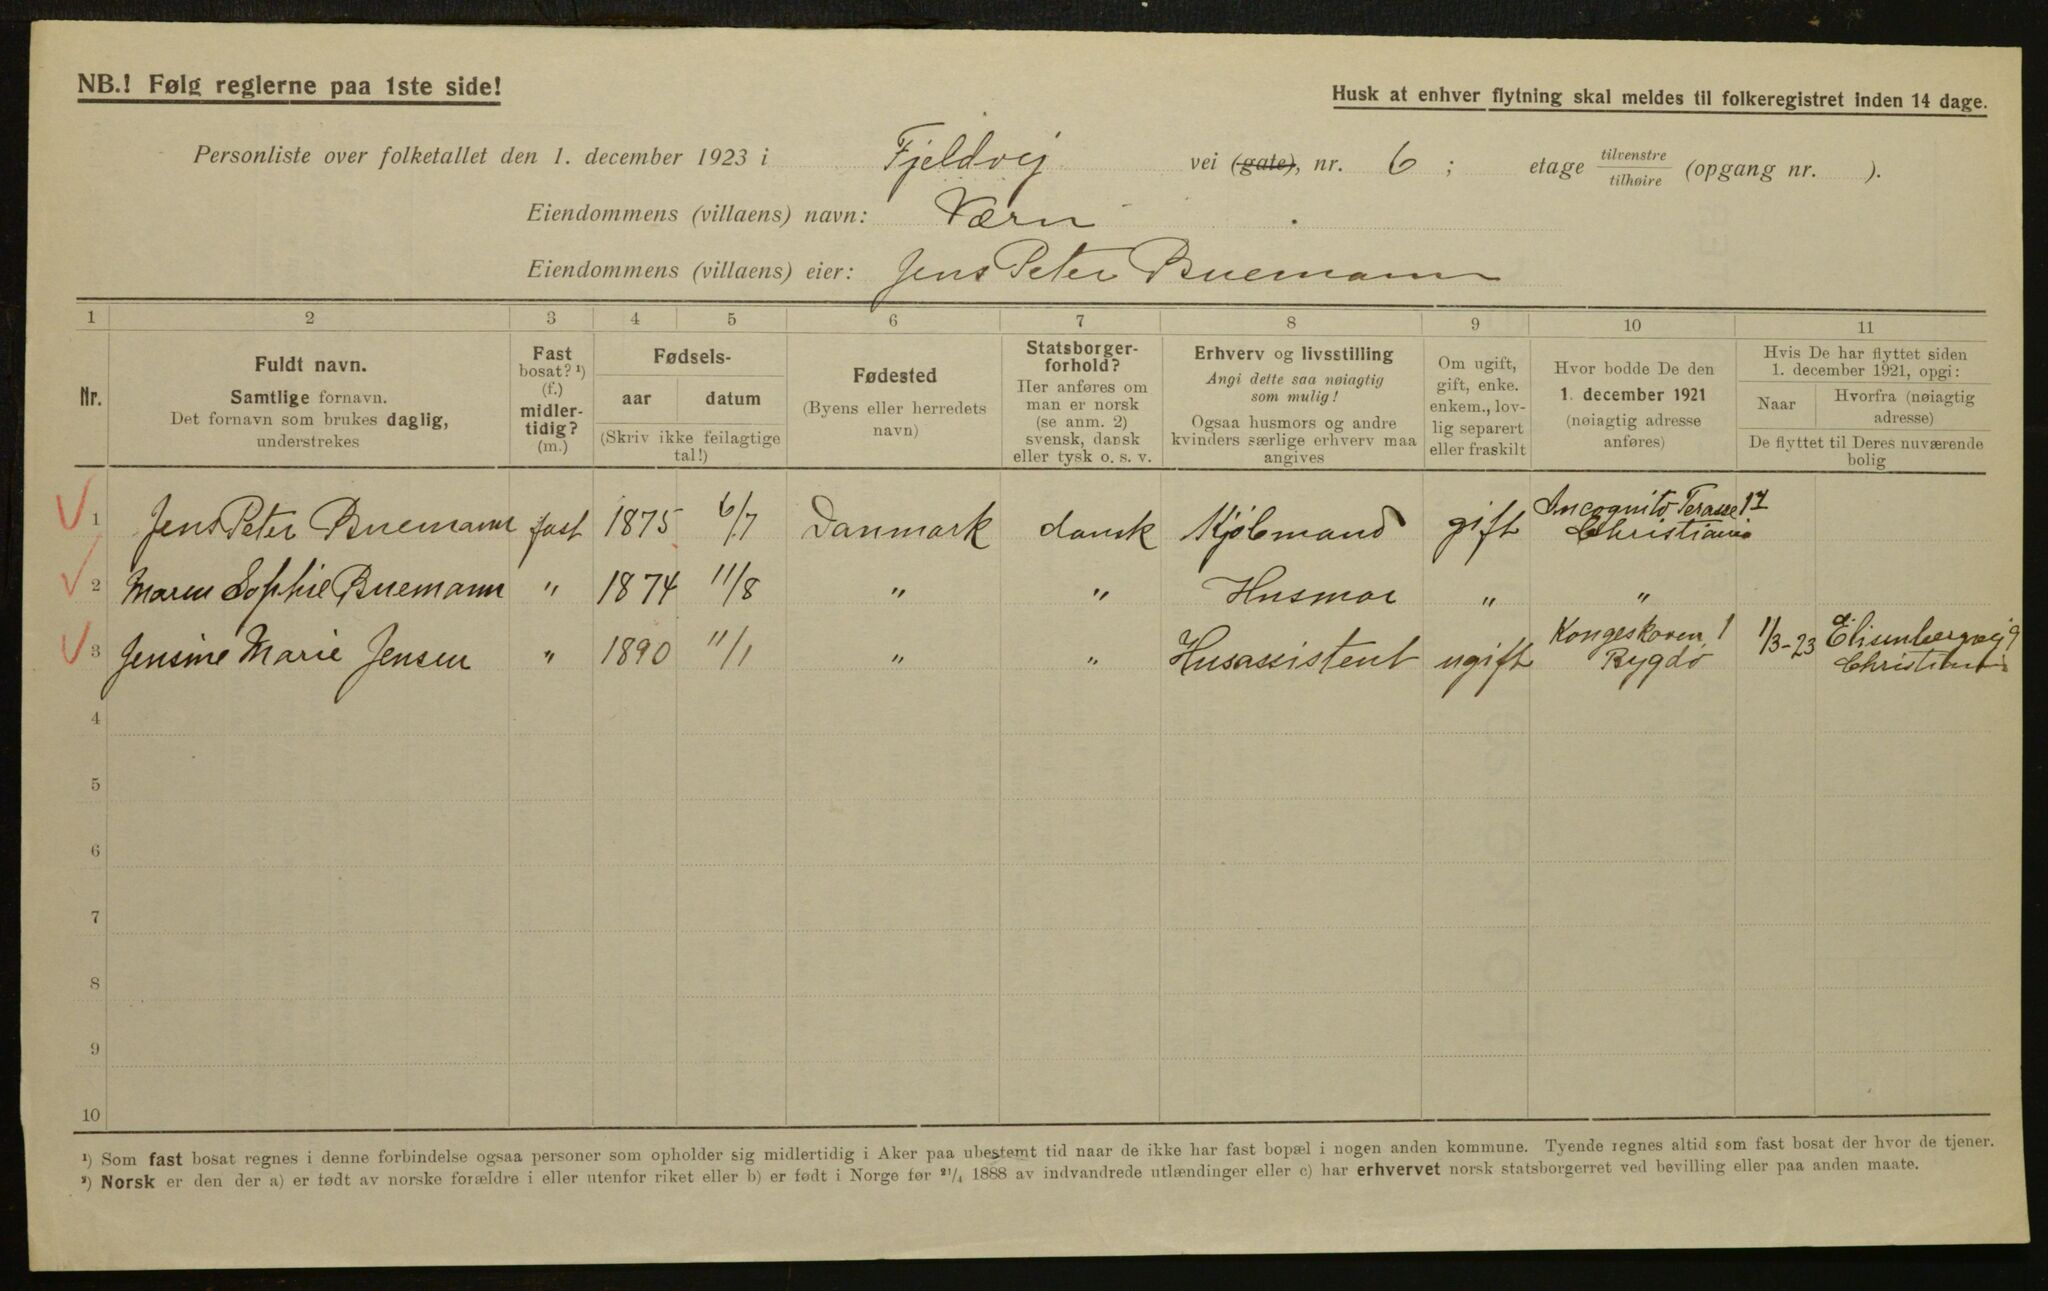 NB.! Følg reglerne paa 1ste side!
Husk at enhver flytning skal meldes til folkeregistret inden 14 dage.
Personliste over folketallet den 1. december 1923 i Fjeldvej vei (gate), nr. 6 ; etage tilvenstre tilhøire (opgang nr. ).
Eiendommens (villaens) navn: Værn
Eiendommens (villaens) eier: Jens Peter Buemann
1 2 3 4 5 6 7 8 9 10 11
Nr.
Fuldt navn.
Samtlige fornavn.
Det fornavn som brukes daglig,
understrekes
Fast
bosat? ¹)
(f.)
midler-
tidig?
(m.)
Fødsels-
aar datum
(Skriv ikke feilagtige
tal!)
Fødested
(Byens eller herredets
navn)
Statsborger-
forhold?
Her anføres om
man er norsk
(se anm. 2)
svensk, dansk
eller tysk o. s. v.
Erhverv og livsstilling
Angi dette saa nøiagtig
som mulig!
Ogsaa husmors og andre
kvinders særlige erhverv maa
angives
Om ugift,
gift, enke.
enkem., lov-
lig separert
eller fraskilt
Hvor bodde De den
1. december 1921
(nøiagtig adresse
anføres)
Hvis De har flyttet siden
1. december 1921, opgi:
Naar
Hvorfra (nøiagtig
adresse)
De flyttet til Deres nuværende
bolig
1 Jens Peter Buemann fast 1875 6/7 Danmark dansk Kjøbmand gift Incognito Terasse 17
Christiania
2 Maren Sophie Buemann " 1874 11/8 " " Husmor " "
3 Jensine Marie Jensen " 1890 11/1 " " Husassistent ugift Kongeskoven 1 1/3-23 Elisenbergvej 9
Bygdø Christiania
4
5
6
7
8
9
10
¹) Som fast bosat regnes i denne forbindelse ogsaa personer som opholder sig midlertidig i Aker paa ubestemt tid naar de ikke har fast bopæl i nogen anden kommune. Tyende regnes altid som fast bosat der hvor de tjener.
²) Norsk er den der a) er født av norske forældre i eller utenfor riket eller b) er født i Norge før ²¹/₄ 1888 av indvandrede utlændinger eller c) har erhvervet norsk statsborgerret ved bevilling eller paa anden maate.